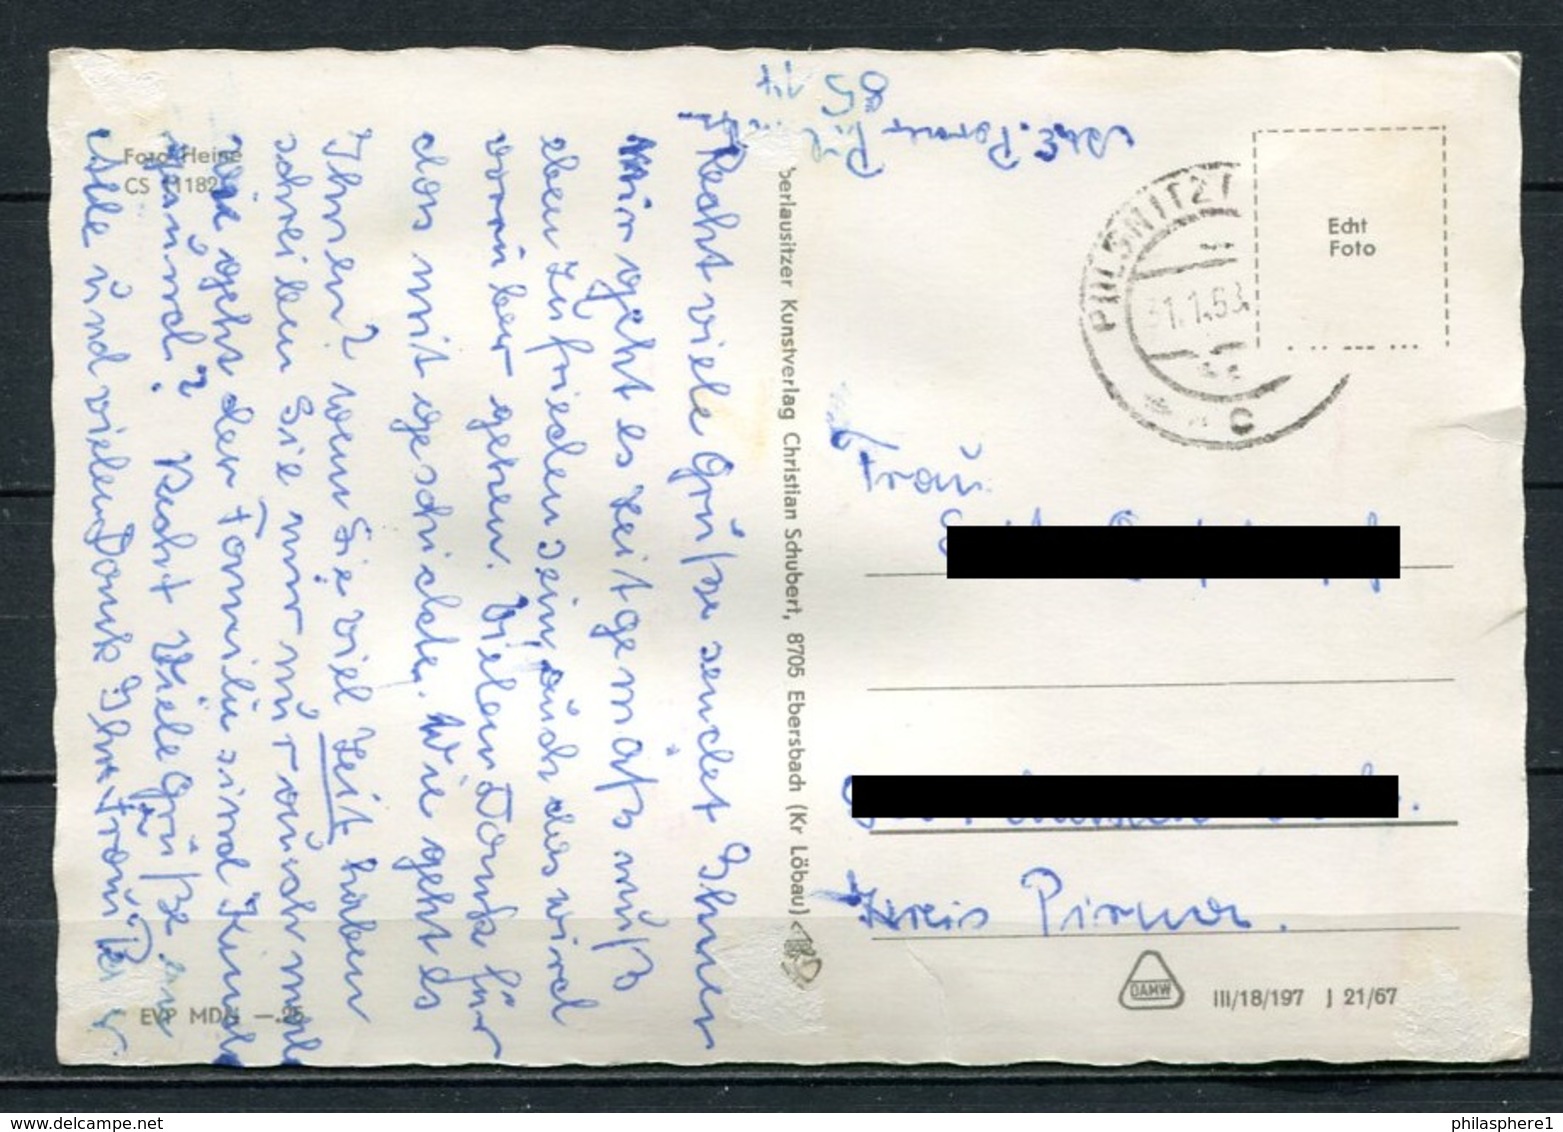 Foto Heine
CS 11182
Recht viele Grüße sendet Ihnen
Mir geht es zeitgemäß muß
eben zufrieden sein, auch das wird
vorrüber gehen. Vielen Dank für
das mit geschickte. Wie geht es
Ihnen? wenn Sie viel Zeit haben
schreiben Sie mir nür auch mal
wie geht der Familie sind
gesund? Recht Viele Grüße an
Alle und vielen Dank Ihre Frau
berlausitzer Kunstverlag Christian Schubert, 8705 Ebersbach (Kr Löbau)
PULSNITZ
31.1.68
C
Echt
Foto
Frau
Kreis Pirna.
DAMW
III/18/197 J 21/67
EVP MDN —.25
philasphere1